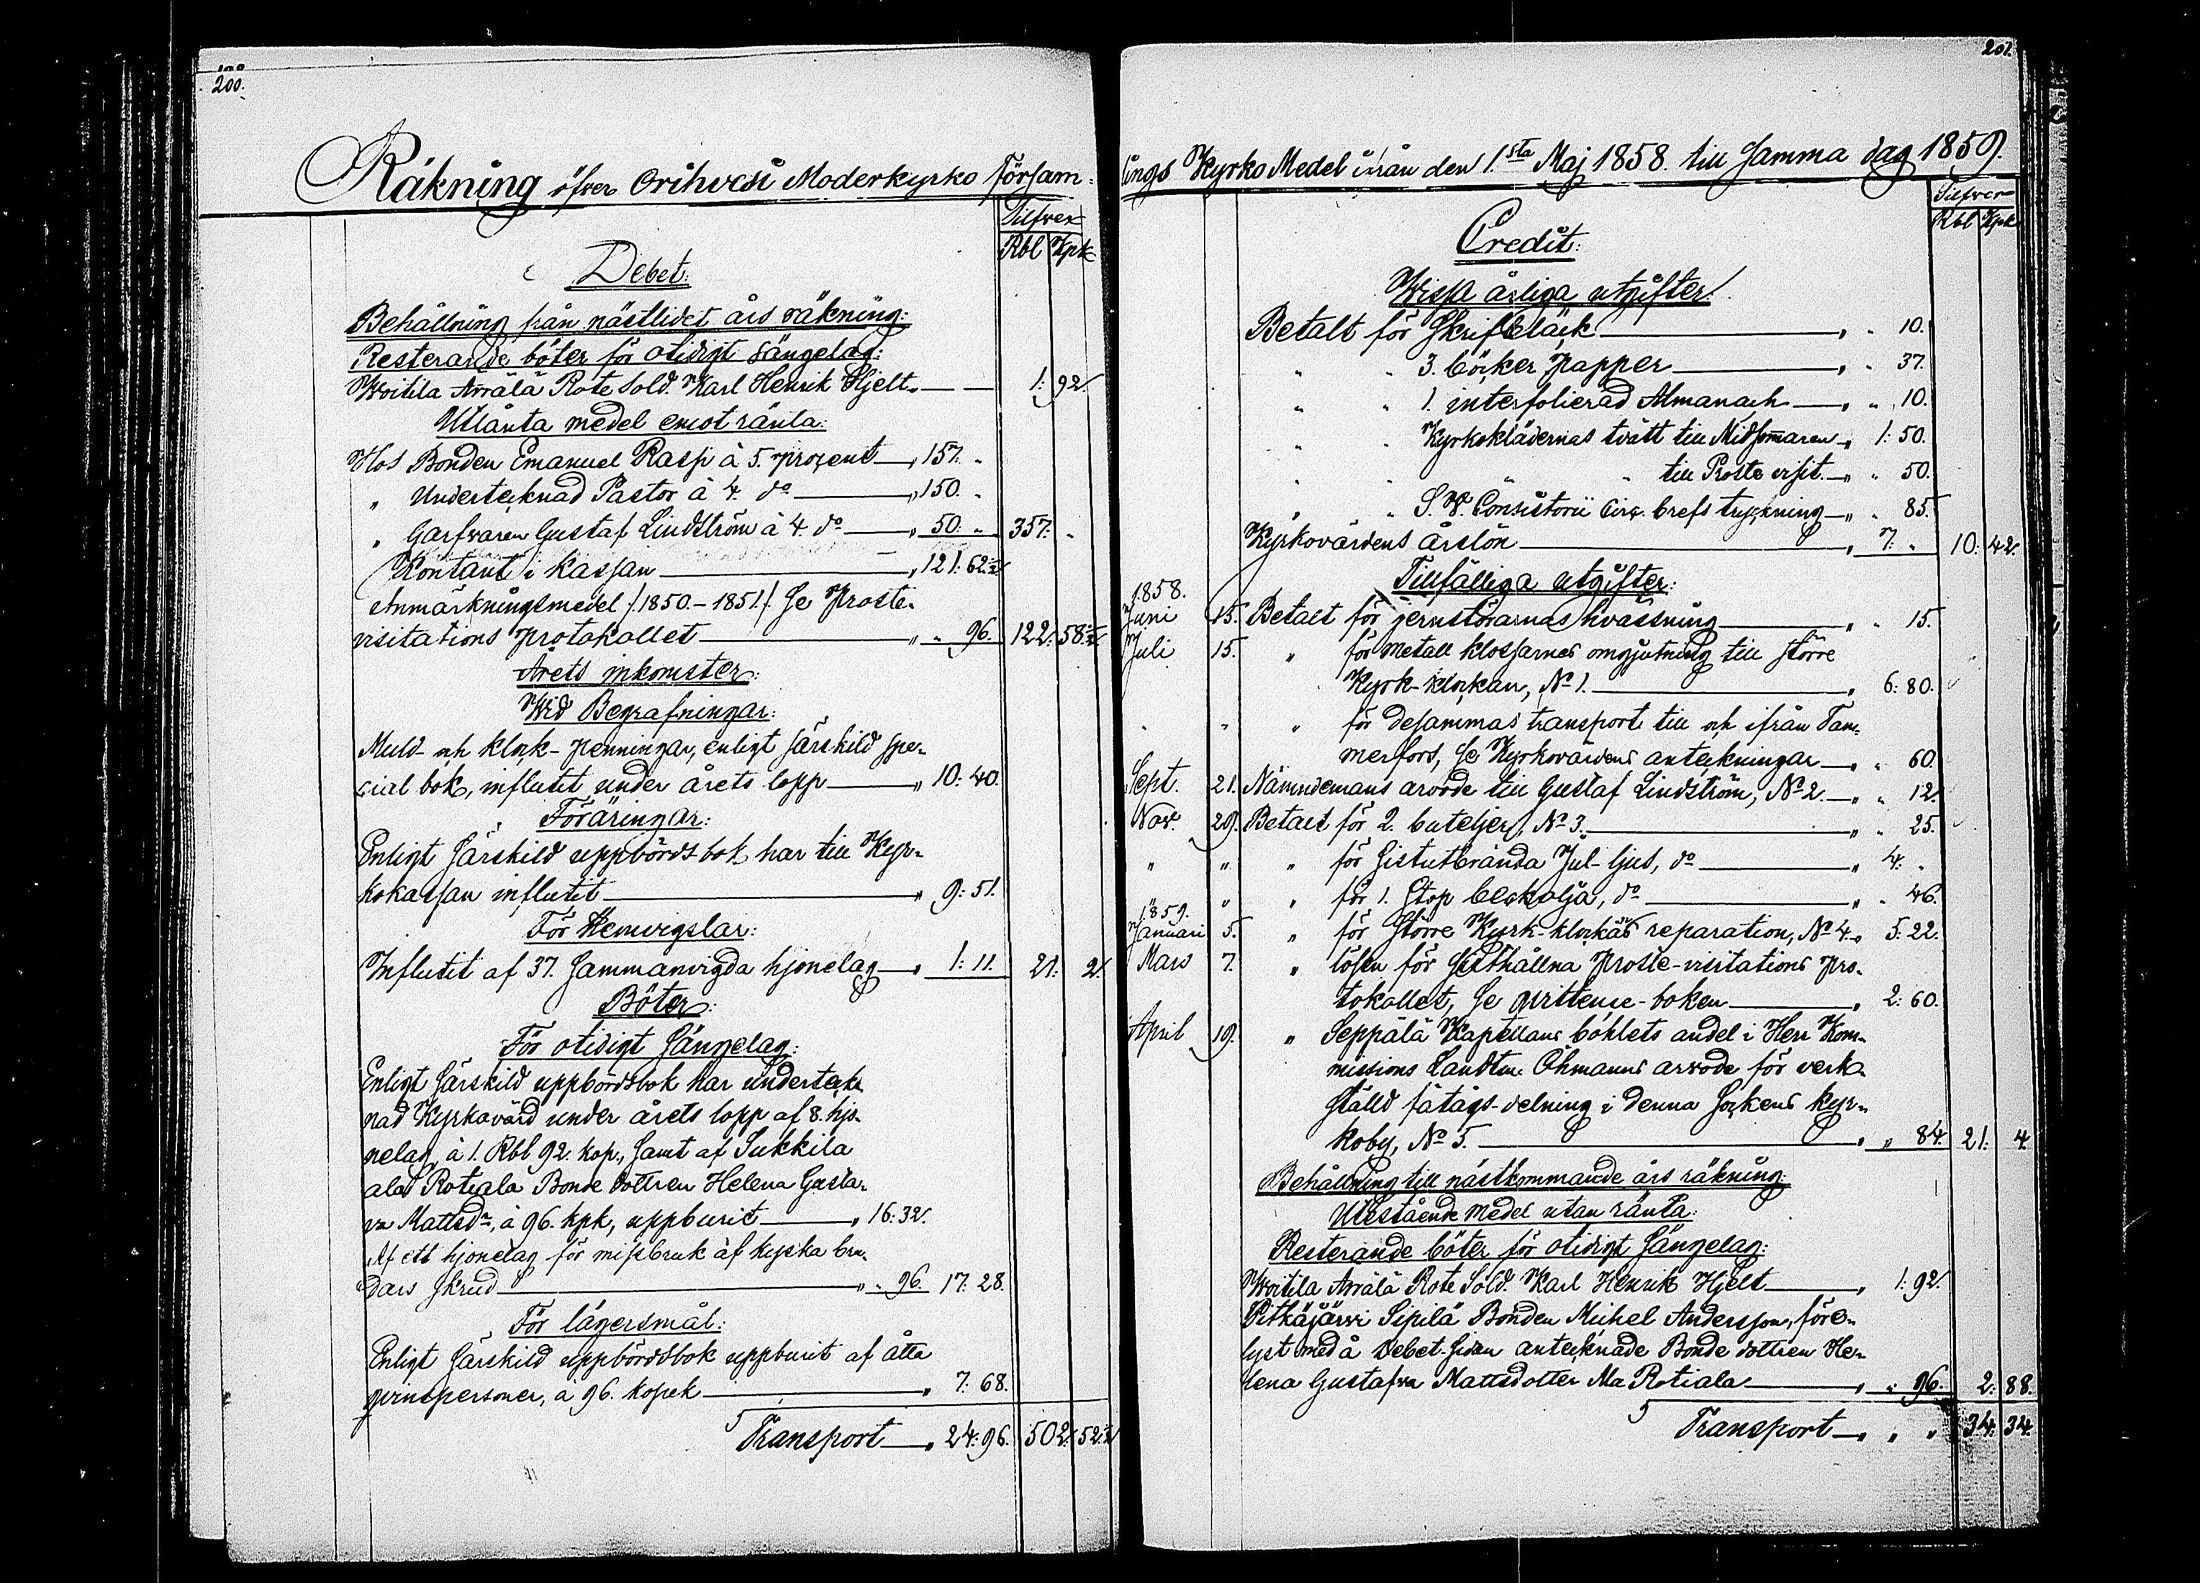 200.
Räkning öfver Orihvesi Moderkyrko Försam=
Silfver
Rbl Kpk
Debet:
Behållning från nästlidet års räkning:
Resterande böter för otidigt sängelag:
Woitila Arrälä Rote Sold. Karl Henrik Hjelt — — 1: 92.
Utlånta medel emot ränta:
Hos Bonden Emanuel Raspi à 5. procent — „ 157. „
„ Undertecknad Pastor à 4. do — „ 150. „
„ Garfvaren Gustaf Lindström à 4. do — „ 50. „ 357. „
Kontant i kassan — „ 121: 62½
Anmärkningsmedel /1850–1851/. Se Proste-
visitations protokollet — „ „ 96. 122: 58½
Årets inkomster:
Wid Begrafningar:
Muld- och klock-penningar, enligt särskild spe-
cial bok, influtit under årets lopp — „ 10: 40.
Föräringar:
Enligt särskild uppbördsbok har till Kyr-
kokassan influtit — „ 9: 51.
För Hemvigslar:
Influtit af 37. sammanvigda hjonelag — „ 1: 11. 21: 2.
Böter:
För otidigt sängelag:
Enligt särskild uppbördsbok har underteck-
nad Kyrkovärd under årets lopp af 8. hjo-
nelag, à 1. Rbl 92. kop., samt af Sukkila
alas Rotiala Bonde dottren Helena Gusta-
va Mattsdr, à 96. kpk, uppburit — „ 16: 32.
Af ett hjonelag för missbruk af kyska bru-
dars skrud — „ „ 96. 17: 28.
För lägersmål:
Enligt särskild uppbördsbok uppburit af åtta
qvinspersoner, à 96. kopek — „ 7: 68.
Transport — „ 24: 96. 502: 52½
201.
lings Kyrko Medel ifrån den 1.sta Maj 1858. till samma dag 1859.
Silfver
Rbl Kpk
Credit:
Wissa årliga utgifter:
Betalt för Skrifbläck — „ „ 10.
„ „ 3. böcker papper — „ „ 37.
„ „ 1. interfolierad Almanach — „ „ 10.
„ „ Kyrkoklädernas tvätt till Midsommaren „ 1: 50.
„ „ „ till Proste visit. — „ „ 50.
„ „ S. W. Consistorii Circ. brefs tryckning — „ „ 85.
Kyrkovärdens årslön — „ 7. „ 10: 42.
Tillfälliga utgifter:
1858.
Juni 15. Betalt för jernstörarnas hvässning — „ „ 15.
Juli 15. „ för metall klossarnes omgjutning till större
Kyrk-klockan, No 1. — „ 6: 80.
„ „ „ för desammas transport till och ifrån Tam-
merfors, se Kyrkovärdens anteckningar — „ „ 60.
Sept. 21. Nämndemans arvode till Gustaf Lindström, No 2. — „ „ 12.
Nov. 29. Betalt för 2. buteljer, No 3. — „ „ 25.
„ „ „ för sistutbrända Jul-ljus, do — „ 4. „
„ „ „ för 1. stop beckolja, do — „ „ 46.
1859.
Januari 5. „ för större Kyrk-klockans reparation, No 4. „ 5: 22.
Mars 7. „ lösen för sisthållna Proste-visitations pro-
tokollet, se qvittence-boken — „ 2: 60.
April 19. „ Seppälä Kapellans bohlets andel i Herr Kom-
missions Landtm. Öhmanns arvode för verk-
ställd fätågs-delning i denna sockens kyr-
koby, No 5. — „ „ 84. 21: 4.
Behållning till nästkommande års räkning.
Utestående medel utan ränta:
Resterande böter för otidigt sängelag:
Woitila Arrälä Rote Sold. Karl Henrik Hjelt — „ 1: 92.
Pitkäjärvi Sipilä Bonden Michel Andersson, före-
lyst med å Debet-sidan antecknade Bonde dottren He-
lena Gustafva Mattsdotter Ala Rotiala — „ „ 96. 2: 88.
Transport — „ „ „ 34: 34.